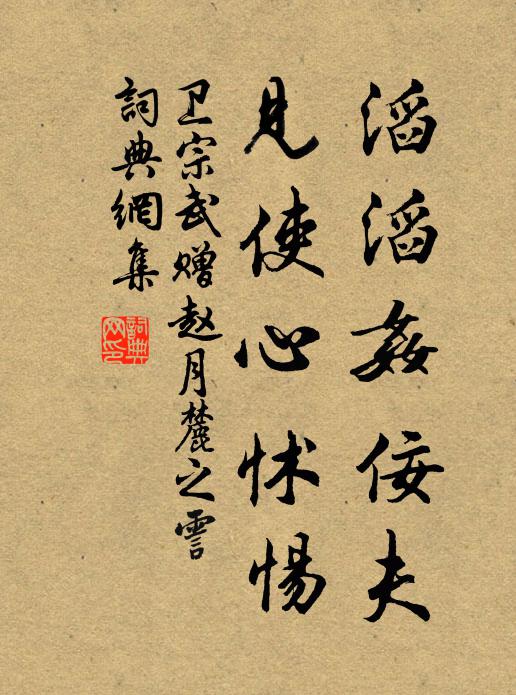 滔滔姦佞夫
見使心怵惕
卫宗武赠赵月麓之霅
詞典網集
詞典網印